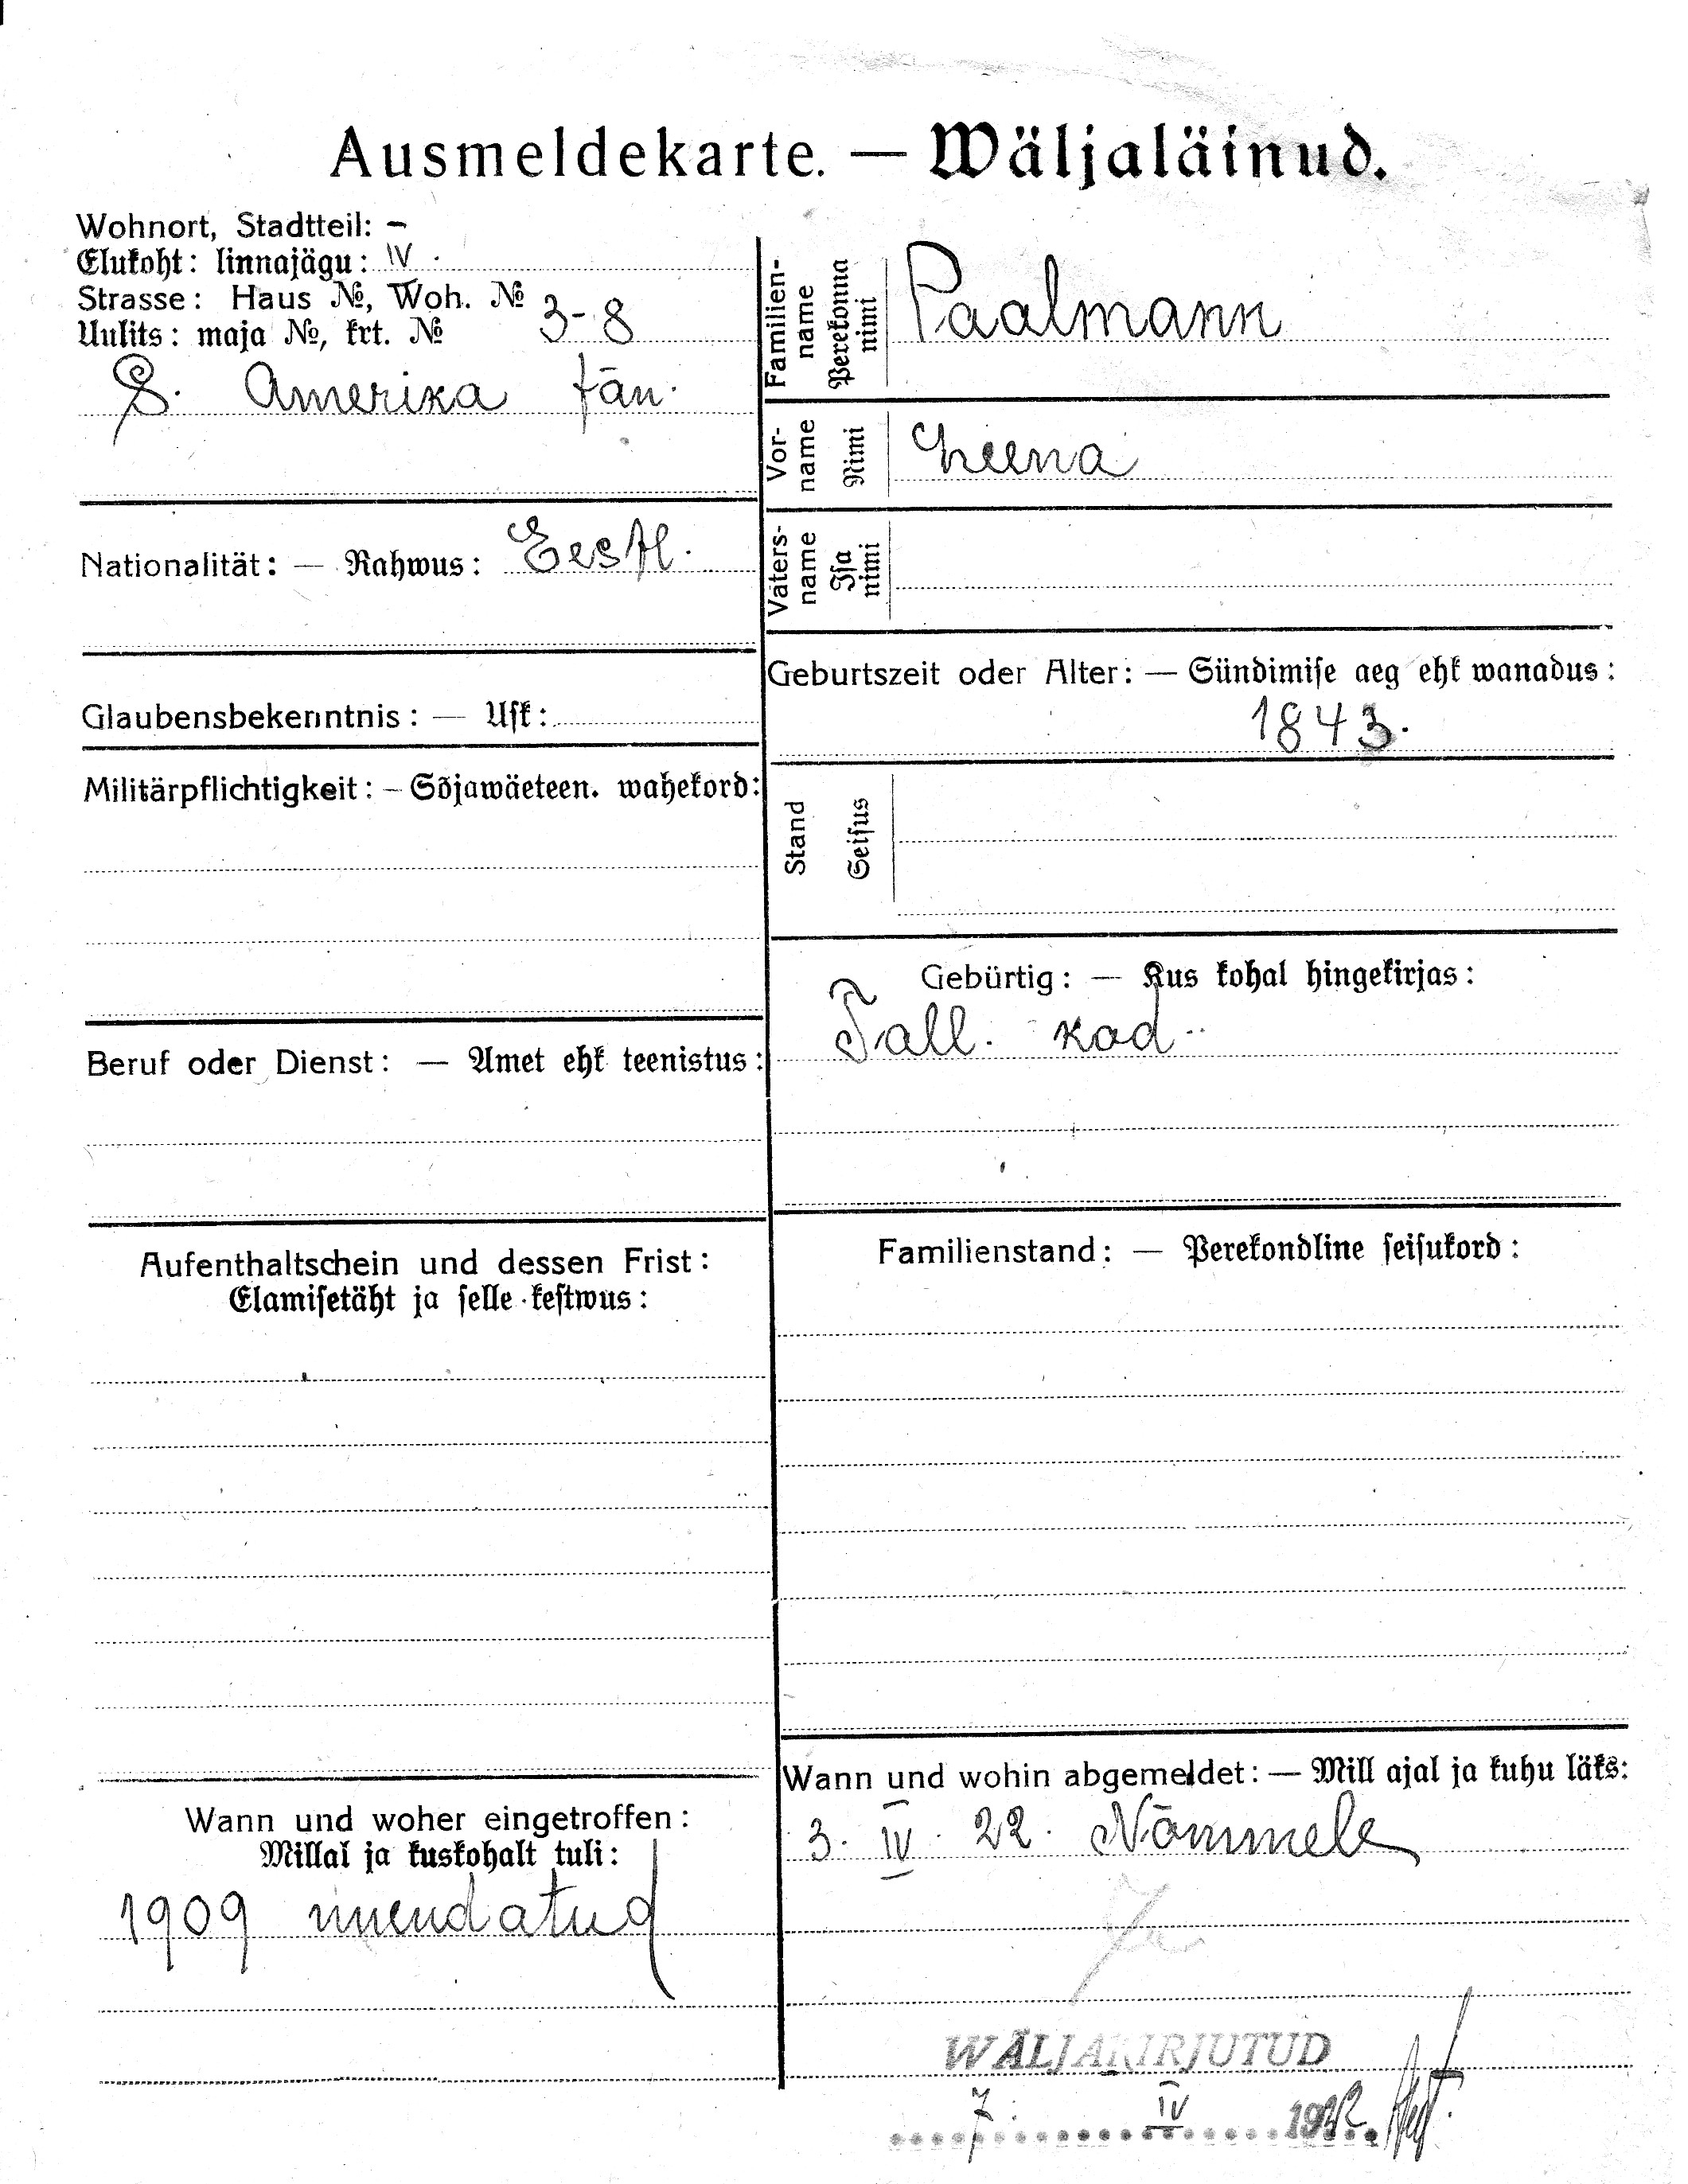 Ausmeldekarte. — Wäljaläinud.
Wohnort, Stadtteil: –
Elukoht: linnajägu: IV.
Strasse: Haus №, Woh. №
Uulits: maja №, krt. № 3-8
S. Amerika tän.
Nationalität: — Rahwus: Eestl.
Glaubensbekenntnis: — Usk:
Militärpflichtigkeit: – Sõjawäeteen. wahekord:
Beruf oder Dienst: — Amet ehk teenistus:
Aufenthaltschein und dessen Frist:
Elamisetäht ja selle kestwus:
Wann und woher eingetroffen:
Millal ja kuskohalt tuli:
1909 muudatud
Familien-
name
Perekonna
nimi
Paalmann
Vor-
name
Nimi
Leena
Vaters-
name
Isa
nimi
Geburtszeit oder Alter: — Sündimise aeg ehk wanadus:
1843.
Stand
Seisus
Gebürtig: — Kus kohal hingekirjas:
Tall. kod.
Familienstand: — Perekondline seisukord:
Wann und wohin abgemeldet: — Mill ajal ja kuhu läks:
3. IV. 22. Nõmmele
WÄLJAKIRJUTUD
7. IV 1922.